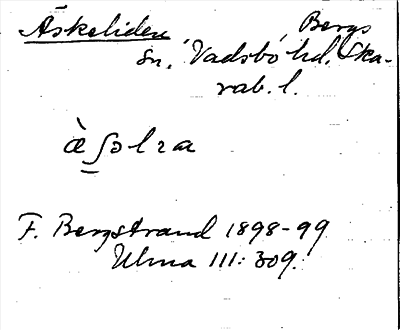 Äskeliden Bergs
sn, Vadsbo hd, Ska-
rab. l.
F. Bergstrand 1898-99
Ulma 111: 309.